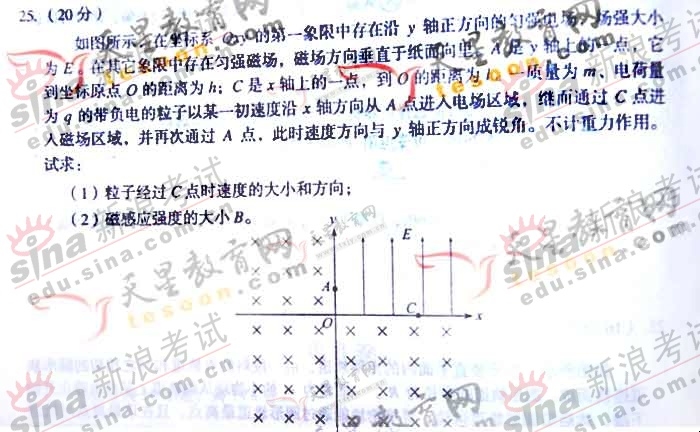 25.（20分）
如图所示，在坐标系 Oxy 的第一象限中存在沿 y 轴正方向的匀强电场，场强大小
为 E。在其它象限中存在匀强磁场，磁场方向垂直于纸面向里。A 是 y 轴上的一点，它
到坐标原点 O 的距离为 h；C 是 x 轴上的一点，到 O 的距离为 一质量为 m、电荷量
为 q 的带负电的粒子以某一初速度沿 x 轴方向从 A 点进入电场区域，继而通过 C 点进
入磁场区域，并再次通过 A 点，此时速度方向与 y 轴正方向成锐角。不计重力作用。
试求：
（1）粒子经过 C 点时速度的大小和方向；
（2）磁感应强度的大小 B。
y
E
A
O
C
x
sina 新浪考试
edu.sina.com.cn
天星教育网
tesoon.com